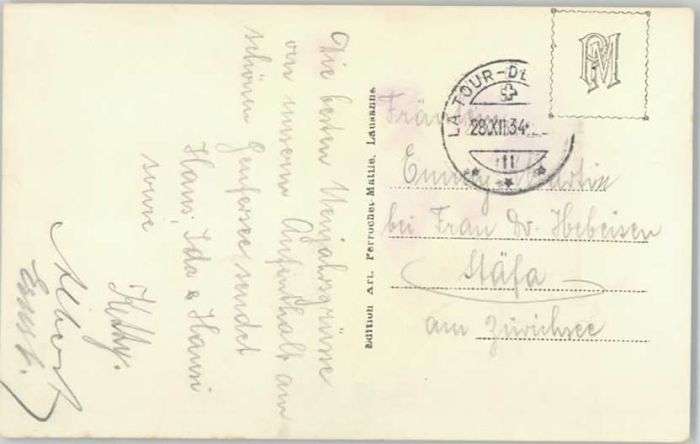 Die besten Neujahrsgrüsse
von unserm Aufenthalt am
schönen Genfersee sendet
Hans, Ida & Hansi
sowie
Ketty.
Albert
Ernst.
Edition Art. Perrochet-Matile, Lausanne
PM
LA TOUR-DE
28.XII.34
Fräulein
Emmy Martin
bei Frau Dr. Hebeisen
Stäfa
am Zürichsee